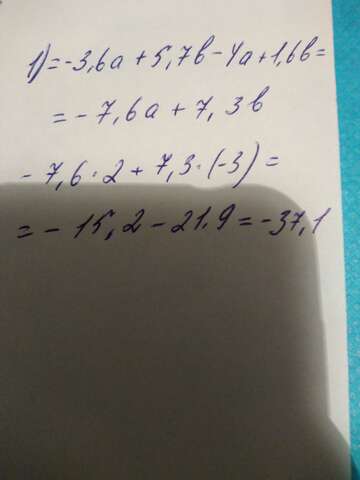 1) = -3,6a + 5,7b - 4a + 1,6b =
= -7,6a + 7,3b
-7,6 · 2 + 7,3 · (-3) =
= -15,2 - 21.9 = -37,1